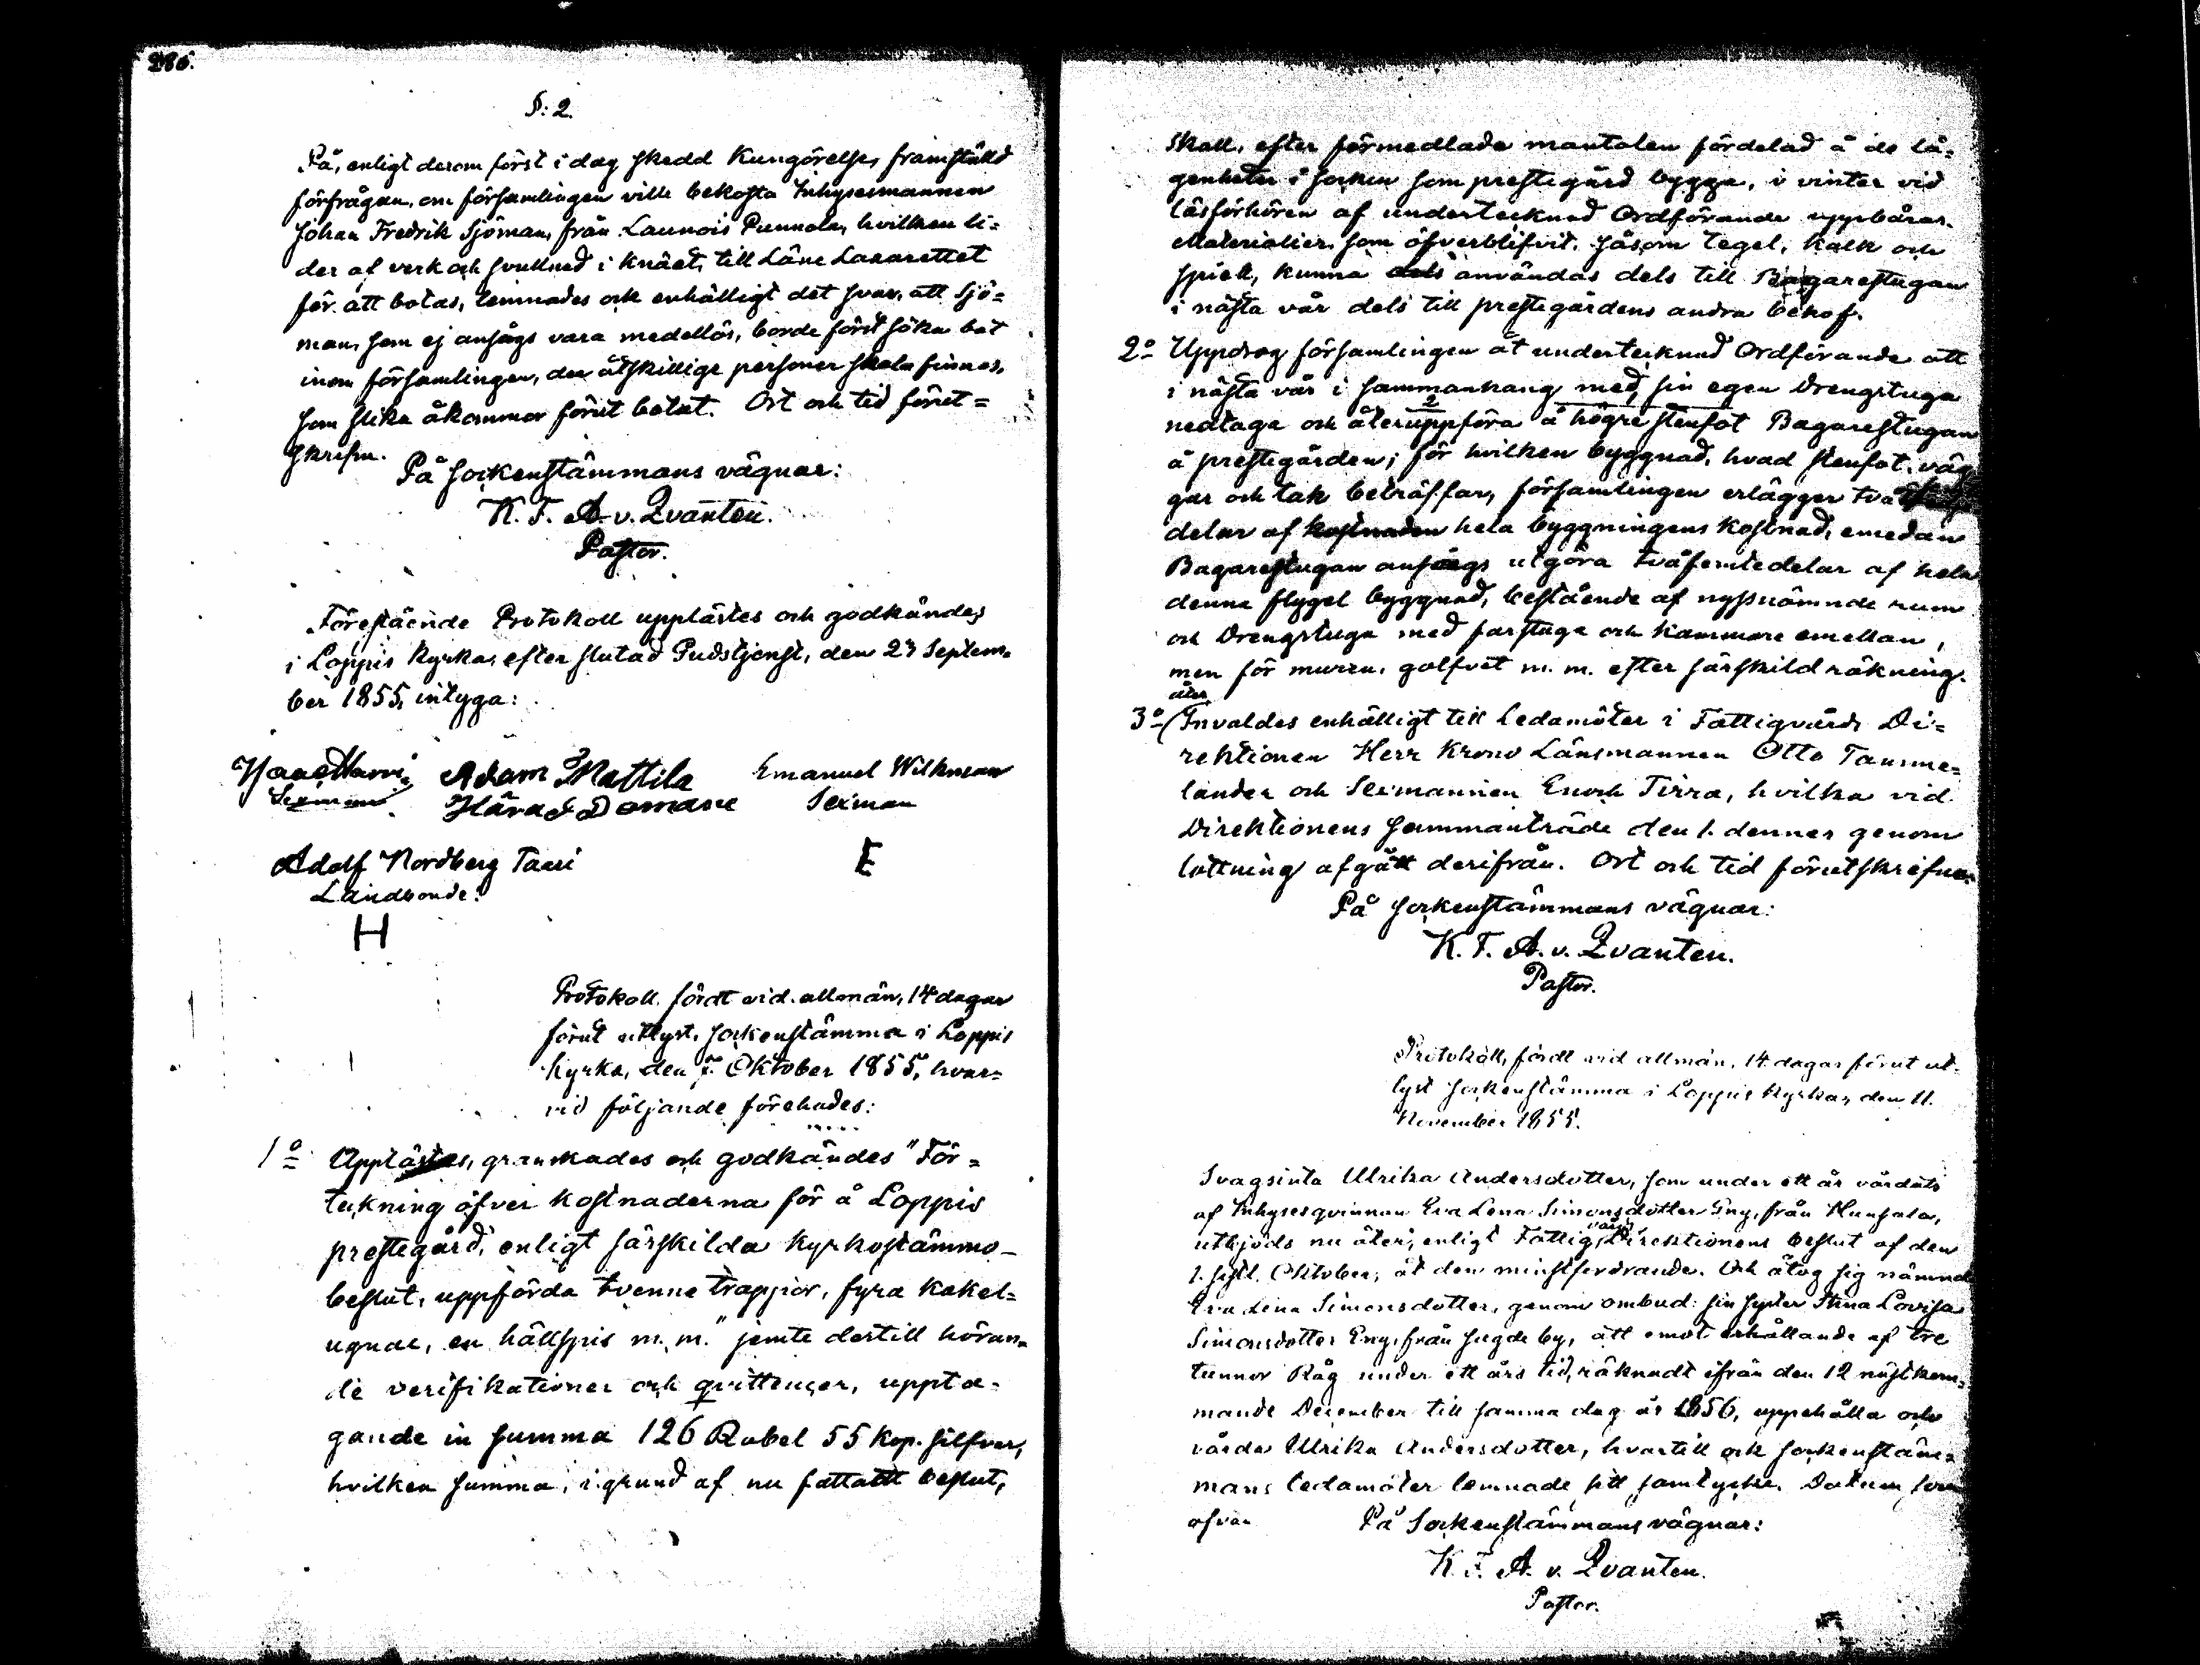 286.
§: 2.
På, enligt derom först i dag skedd Kungörelse, framställd
förfrågan, om församlingen ville bekosta Inhysesmannen
Johan Fredrik Sjöman, från Launois Punnola, hvilken li=
der af verk och svullnad i knäet, till Läns Lazarettet
för att botas, lemnades ock enhälligt det svar, att Sjö=
man, som ej ansågs vara medellös, borde först söka bot
inom församlingen, der åtskillige personer skola finnas,
som slika åkommor förut botat. Ort och tid föret=
skrifna.
På Sockenstämmans vägnar:
K. F. A. v. Qvanten.
Pastor.
Förestående Protokoll upplästes och godkändes
i Loppis Kyrka, efter slutad Gudstjenst, den 23 Septem=
ber 1855, intyga:
Adam Mattila
Emanuel Wilkman
Sexman
Härads Domare
Sexman
Adolf Nordberg Tauri
E
Landbonde.
H
Protokoll, fördt vid allmän, 14 dagar
förut utlyst, Sockenstämma i Loppis
Kyrka, den 7. Oktober 1855, hvar=
vid följande förehades:
1o Upplästes, granskades och godkändes "För=
tekning öfver kostnaderna för å Loppis
prestegård, enligt särskilda Kyrkostämmo-
beslut, uppförda tvenne trappor, fyra kakel=
ugnar, en hällspis m. m." jemte dertill höran=
de verifikationer och qvittenser, uppta=
gande in summa 126 Rubel 55 kop. silfver,
hvilken summa, i grund af nu fattadt beslut,
skall, efter förmedlade mantalen fördelad å de lä=
genheter i socken som prestegård bygga, i vinter vid
läsförhören af undertecknad Ordförande uppbäras.
Materialier som öfverblifvit, såsom tegel, kalk och
spiell, kunna dels användas dels till Bagarestugan
i nästa vår dels till prestegårdens andra behof.
2o Uppdrog församlingen åt undertecknad Ordförande att
i nästa vår i sammanhang med sin egen Drengstuga
2
nedtaga och återuppföra å högre stenfot Bagarestugan
å prestegården; för hvilken byggnad, hvad stenfot, väg
gar och tak beträffar, församlingen erlägger två
delar af kostnaden hela byggningens kostnad, emedan
Bagarestugan ansågs utgöra tvåfemtedelar af hela
denna flygel byggnad, bestående af nyssnämnde rum
och Drengstuga med farstuga och kammare emellan,
men för muren, golfvet m. m. efter särskild räkning.
åter
3o Invaldes enhälligt till Ledamöter i Fattigvårds Di=
rektionen Herr Krono Länsmannen Otto Tamme=
lander och Sexmannen Enoch Tirra, hvilka vid
Direktionens sammanträde den 1. dennes genom
lottning afgått derifrån. Ort och tid förutskrefne.
På Sockenstämmans vägnar:
K. F. A. v. Qvanten.
Pastor.
Protokoll, fördt vid allmän, 14 dagar förut ut=
lyst Sockenstämma i Loppis Kyrka, den 11.
November 1855.
Svagsinta Ulrika Andersdotter, som under ett år vårdats
af Inhysesqvinnan Eva Lena Simonsdotter Eng, från Hunsala,
vårds
utbjöds nu åter, enligt Fattig Direktionens beslut af den
1. sistl. Oktober, åt den minstfordrande. Och åtog sig nämnd
Eva Lena Simonsdotter, genom ombud: sin syster Stina Lovisa
Simonsdotter Eng, från Sugde by, att emot erhållande af tre
tunnor Råg under ett års tid, räknadt ifrån den 12 nästkom=
mande December till samma dag år 1856, uppehålla och
vårda Ulrika Andersdotter, hvartill ock sockenstäm=
mans ledamöter lemnade sitt samtycke. Datum som
ofvan
På Sockenstämmans vägnar:
K. F. A. v. Qvanten.
Pastor.